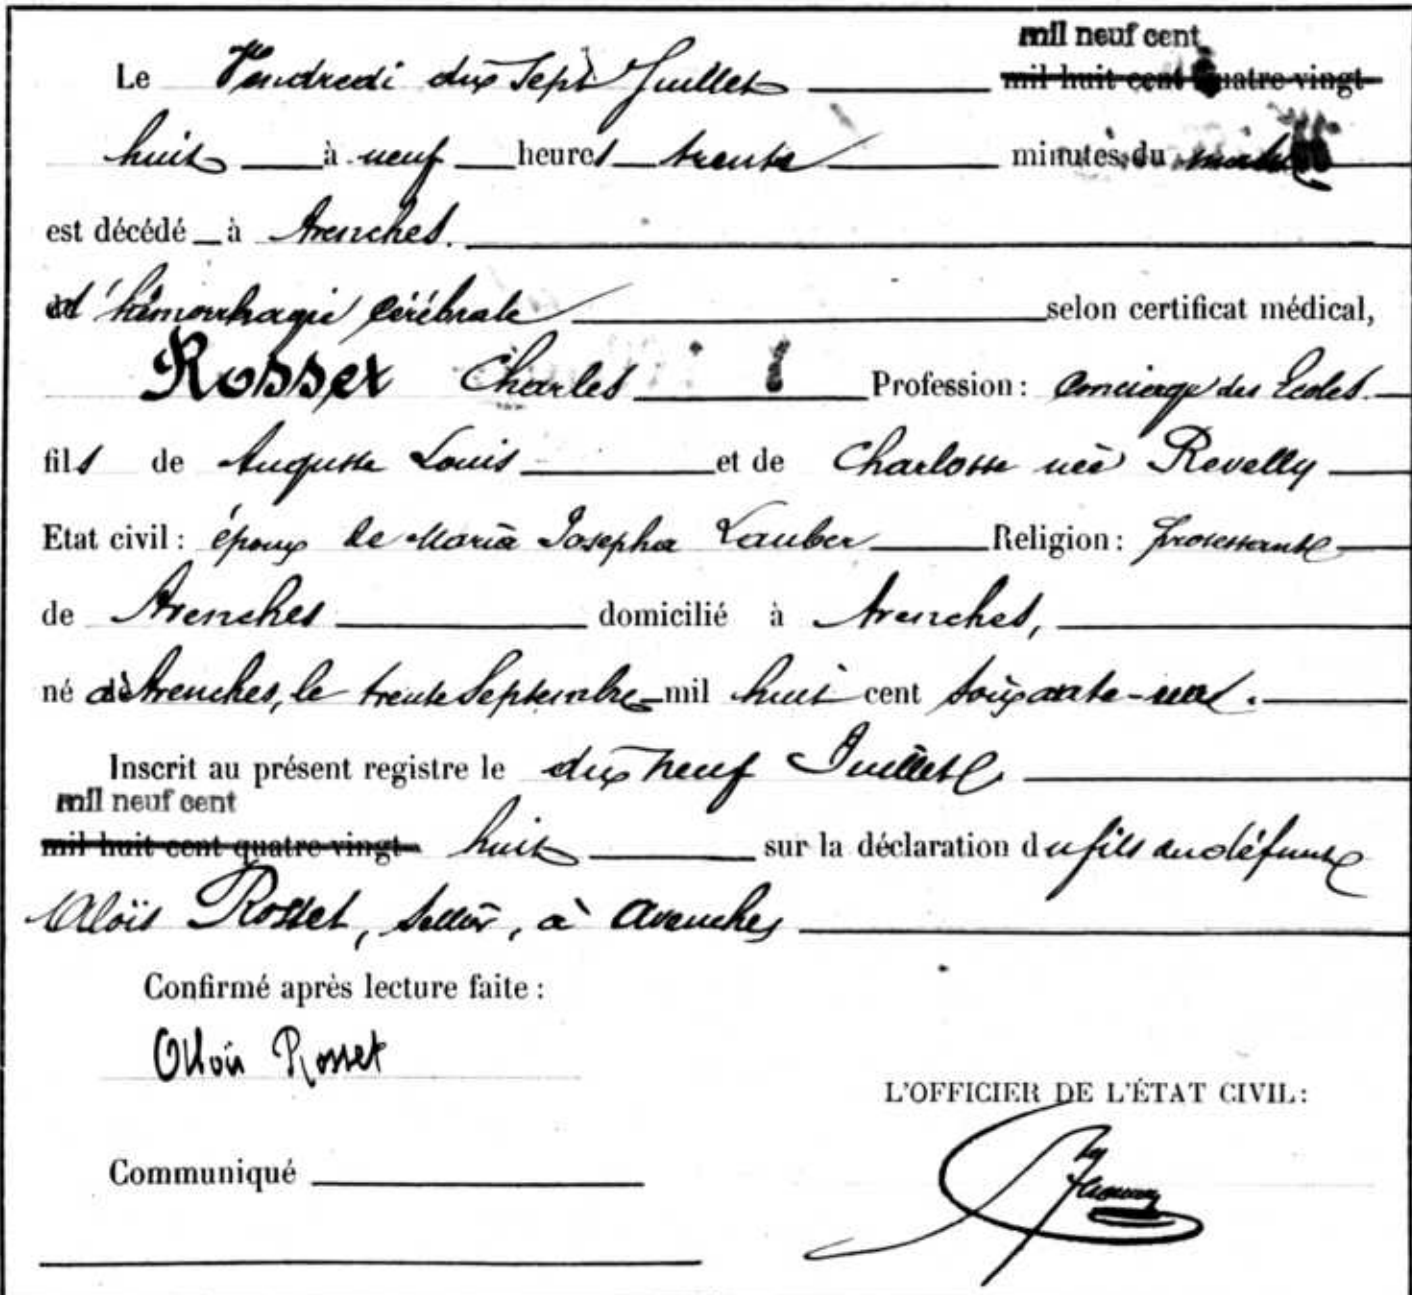 mil neuf cent
Le Vendredi dix sept Juillet mil huit cent quatre-vingt-
huit à neuf heures trente minutes du matin
est décédé à Avenches.
d'hémorrhagie cérébrale selon certificat médical,
Rosset Charles Profession : Concierge des Ecoles.
fils de Auguste Louis et de Charlotte née Revelly
Etat civil : époux de Maria Josepha Lauber Religion : protestante
de Avenches domicilié à Avenches,
né à Avenches, le trente Septembre mil huit cent soixante-un.
Inscrit au présent registre le dix neuf Juillet
mil neuf cent
mil huit cent quatre-vingt- huit sur la déclaration du fils du défunt
Aloïs Rosset, sellier, à Avenches
Confirmé après lecture faite :
Aloïs Rosset
L'OFFICIER DE L'ÉTAT CIVIL :
Communiqué